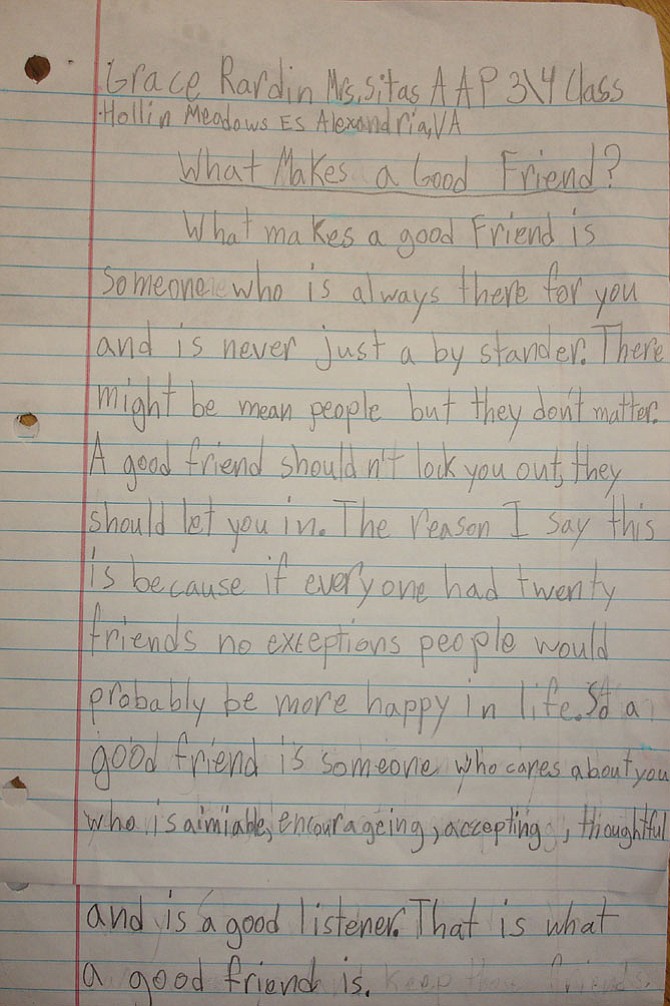 Grace Rardin Mrs. Sitas AAP 3\4 Class
Hollin Meadows ES Alexandria, VA
What Makes a Good Friend?
What makes a good Friend is
someone who is always there for you
and is never just a by stander. There
might be mean people but they don't matter.
A good friend shouldn't lock you out, they
should let you in. The reason I say this
is because if everyone had twenty
friends no exceptions people would
probably be more happy in life. So a
good friend is someone who cares about you
who is aimiable, encourageing, accepting, thoughtful
and is a good listener. That is what
a good friend is. Keep friends.